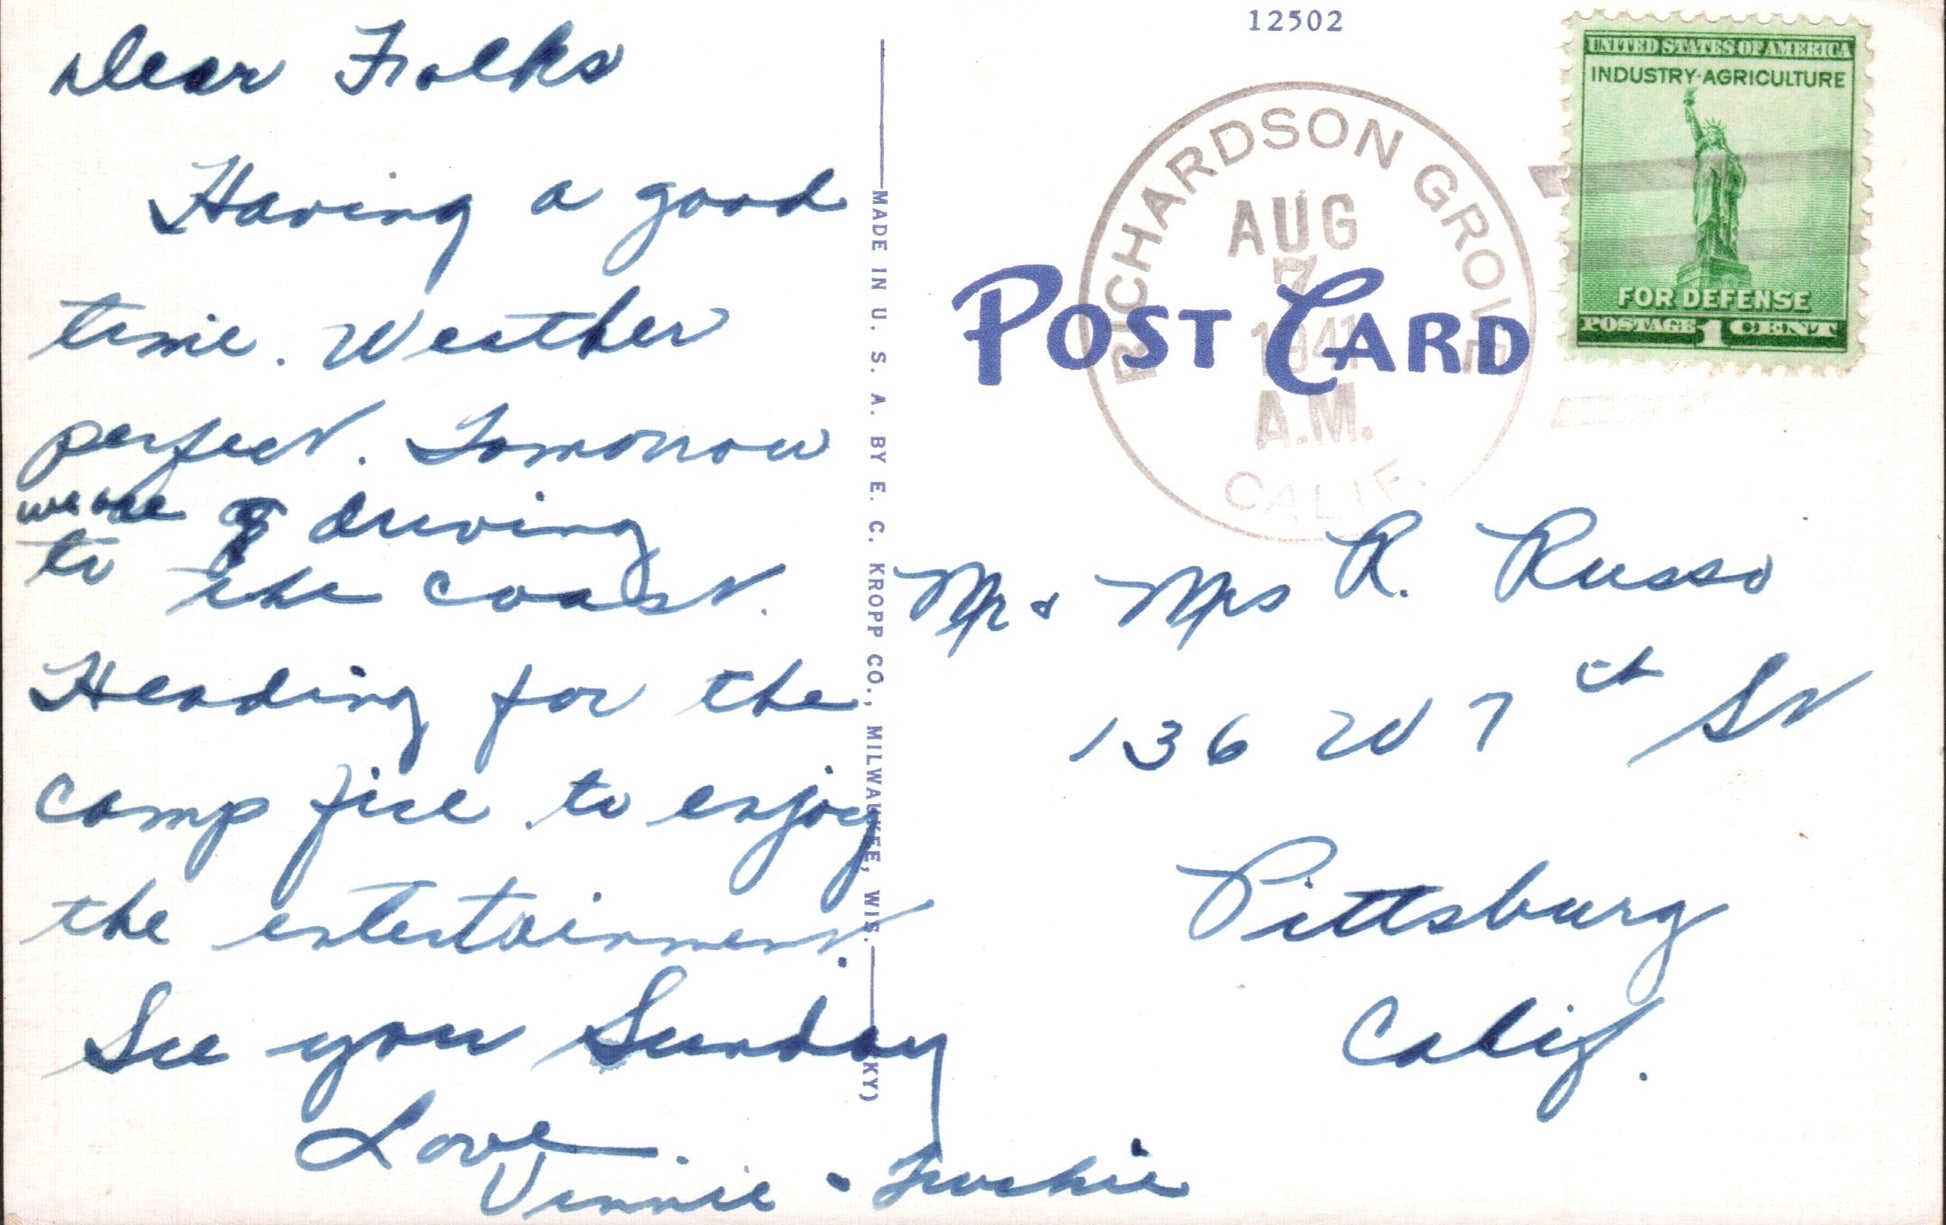 Dear Folks
Having a good
time. Weather
perfect. Tomorrow
we are driving
to the coast.
Heading for the
camp fire to enjoy
the entertainment.
See you Sunday
Love
Vinnie &
MADE IN U. S. A. BY E. C. KROPP CO., MILWAUKEE, WIS.
KY)
12502
RICHARDSON GROVE
AUG
7
1941
A.M.
CALIF.
POST CARD
UNITED STATES OF AMERICA
INDUSTRY·AGRICULTURE
FOR DEFENSE
POSTAGE 1 CENT
Mr & Mrs R. Russo
136 W 7th St
Pittsburg
Calif.